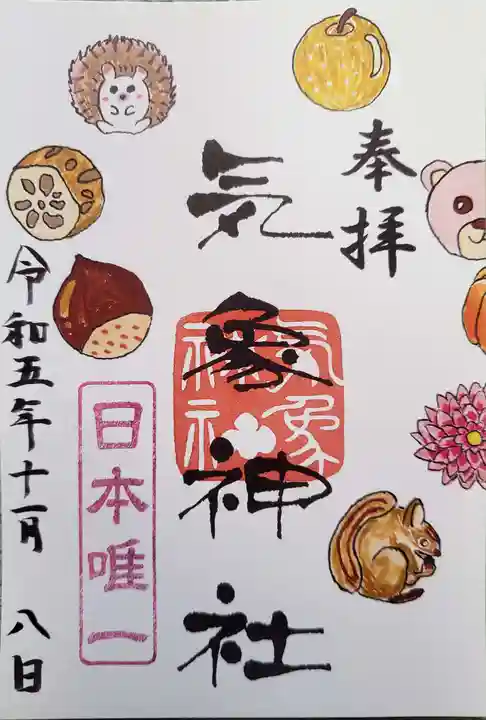 奉拝
気象神社
気象
神社
日本唯一
令和五年十一月 八日